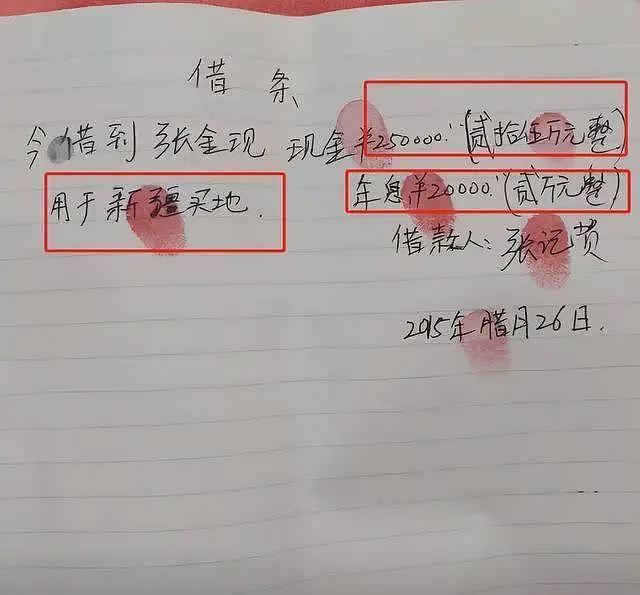 借条
今借到张金现 现金¥250000.(贰拾伍万元整)
用于新疆买地. 年息¥20000.(贰万元整)
借款人:张记黄
2015年腊月26日.